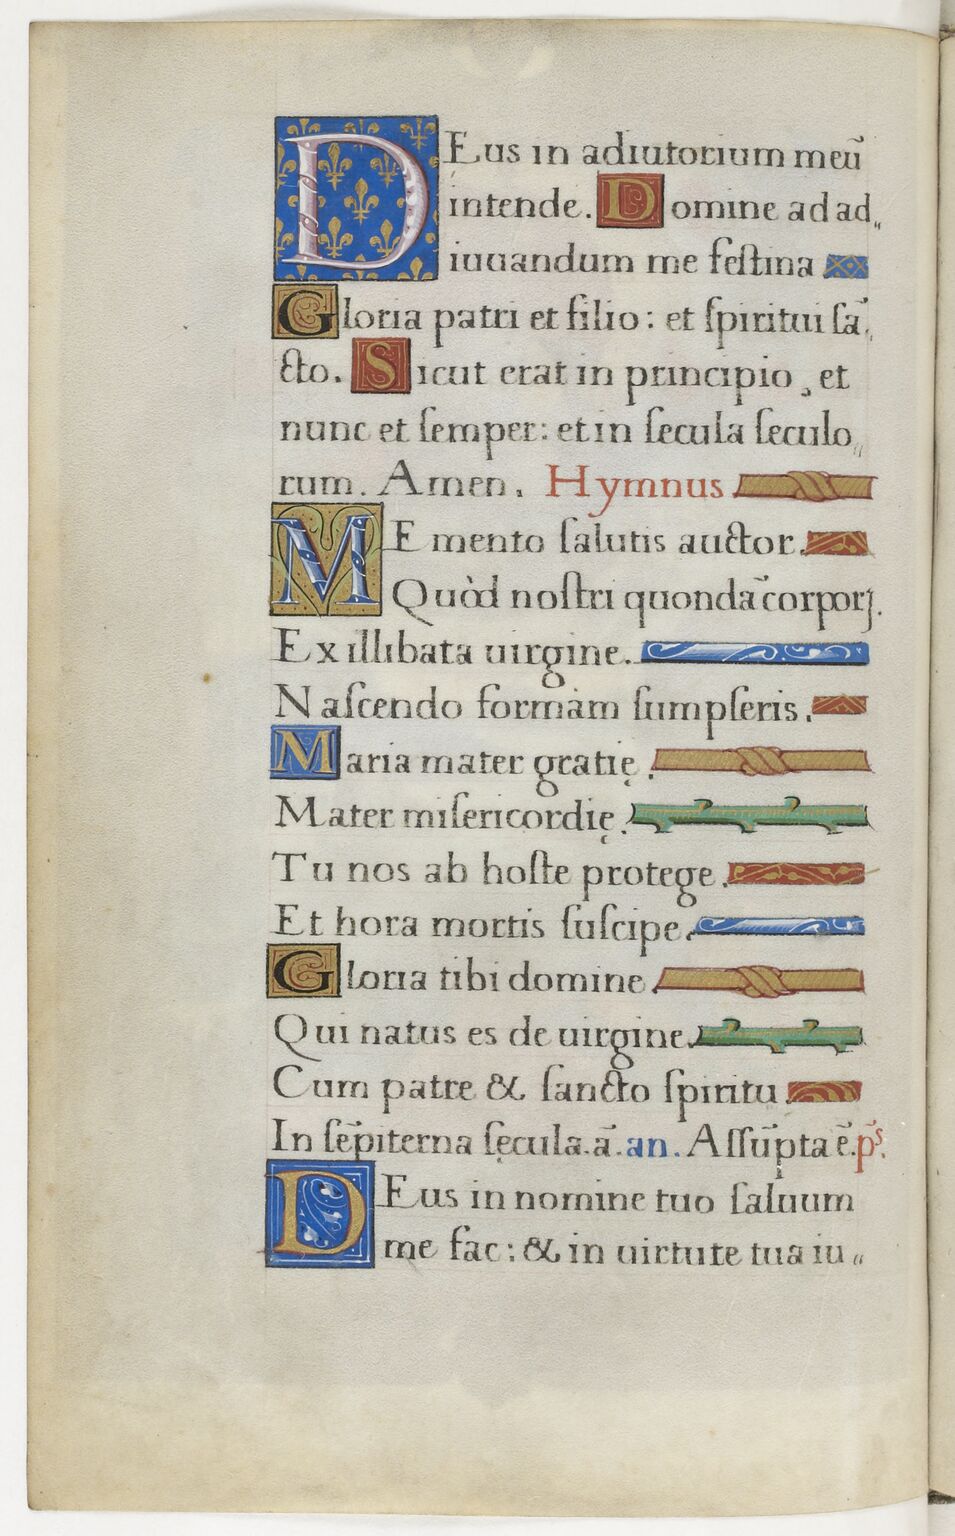 DEus in adiutorium meū
intende. Domine ad ad„
iuuandum me feſtina
Gloria patri et filio: et ſpiritui ſā„
cto. Sicut erat in principio, et
nunc et ſemper: et in ſecula ſeculo„
rum. Amen. Hymnus
MEmento ſalutis auctor.
Quòd noſtri quondā corporj.
Ex illibata uirgine.
Naſcendo formam ſumpſeris.
Maria mater gratię.
Mater miſericordię.
Tu nos ab hoſte protege.
Et hora mortis ſuſcipe.
Gloria tibi domine.
Qui natus es de uirgine.
Cum patre & ſancto ſpiritu.
In ſēpiterna ſęcula. ā. an. Aſſūpta ē. p̄s.
DEus in nomine tuo ſaluum
me fac: & in uirtute tua iu„